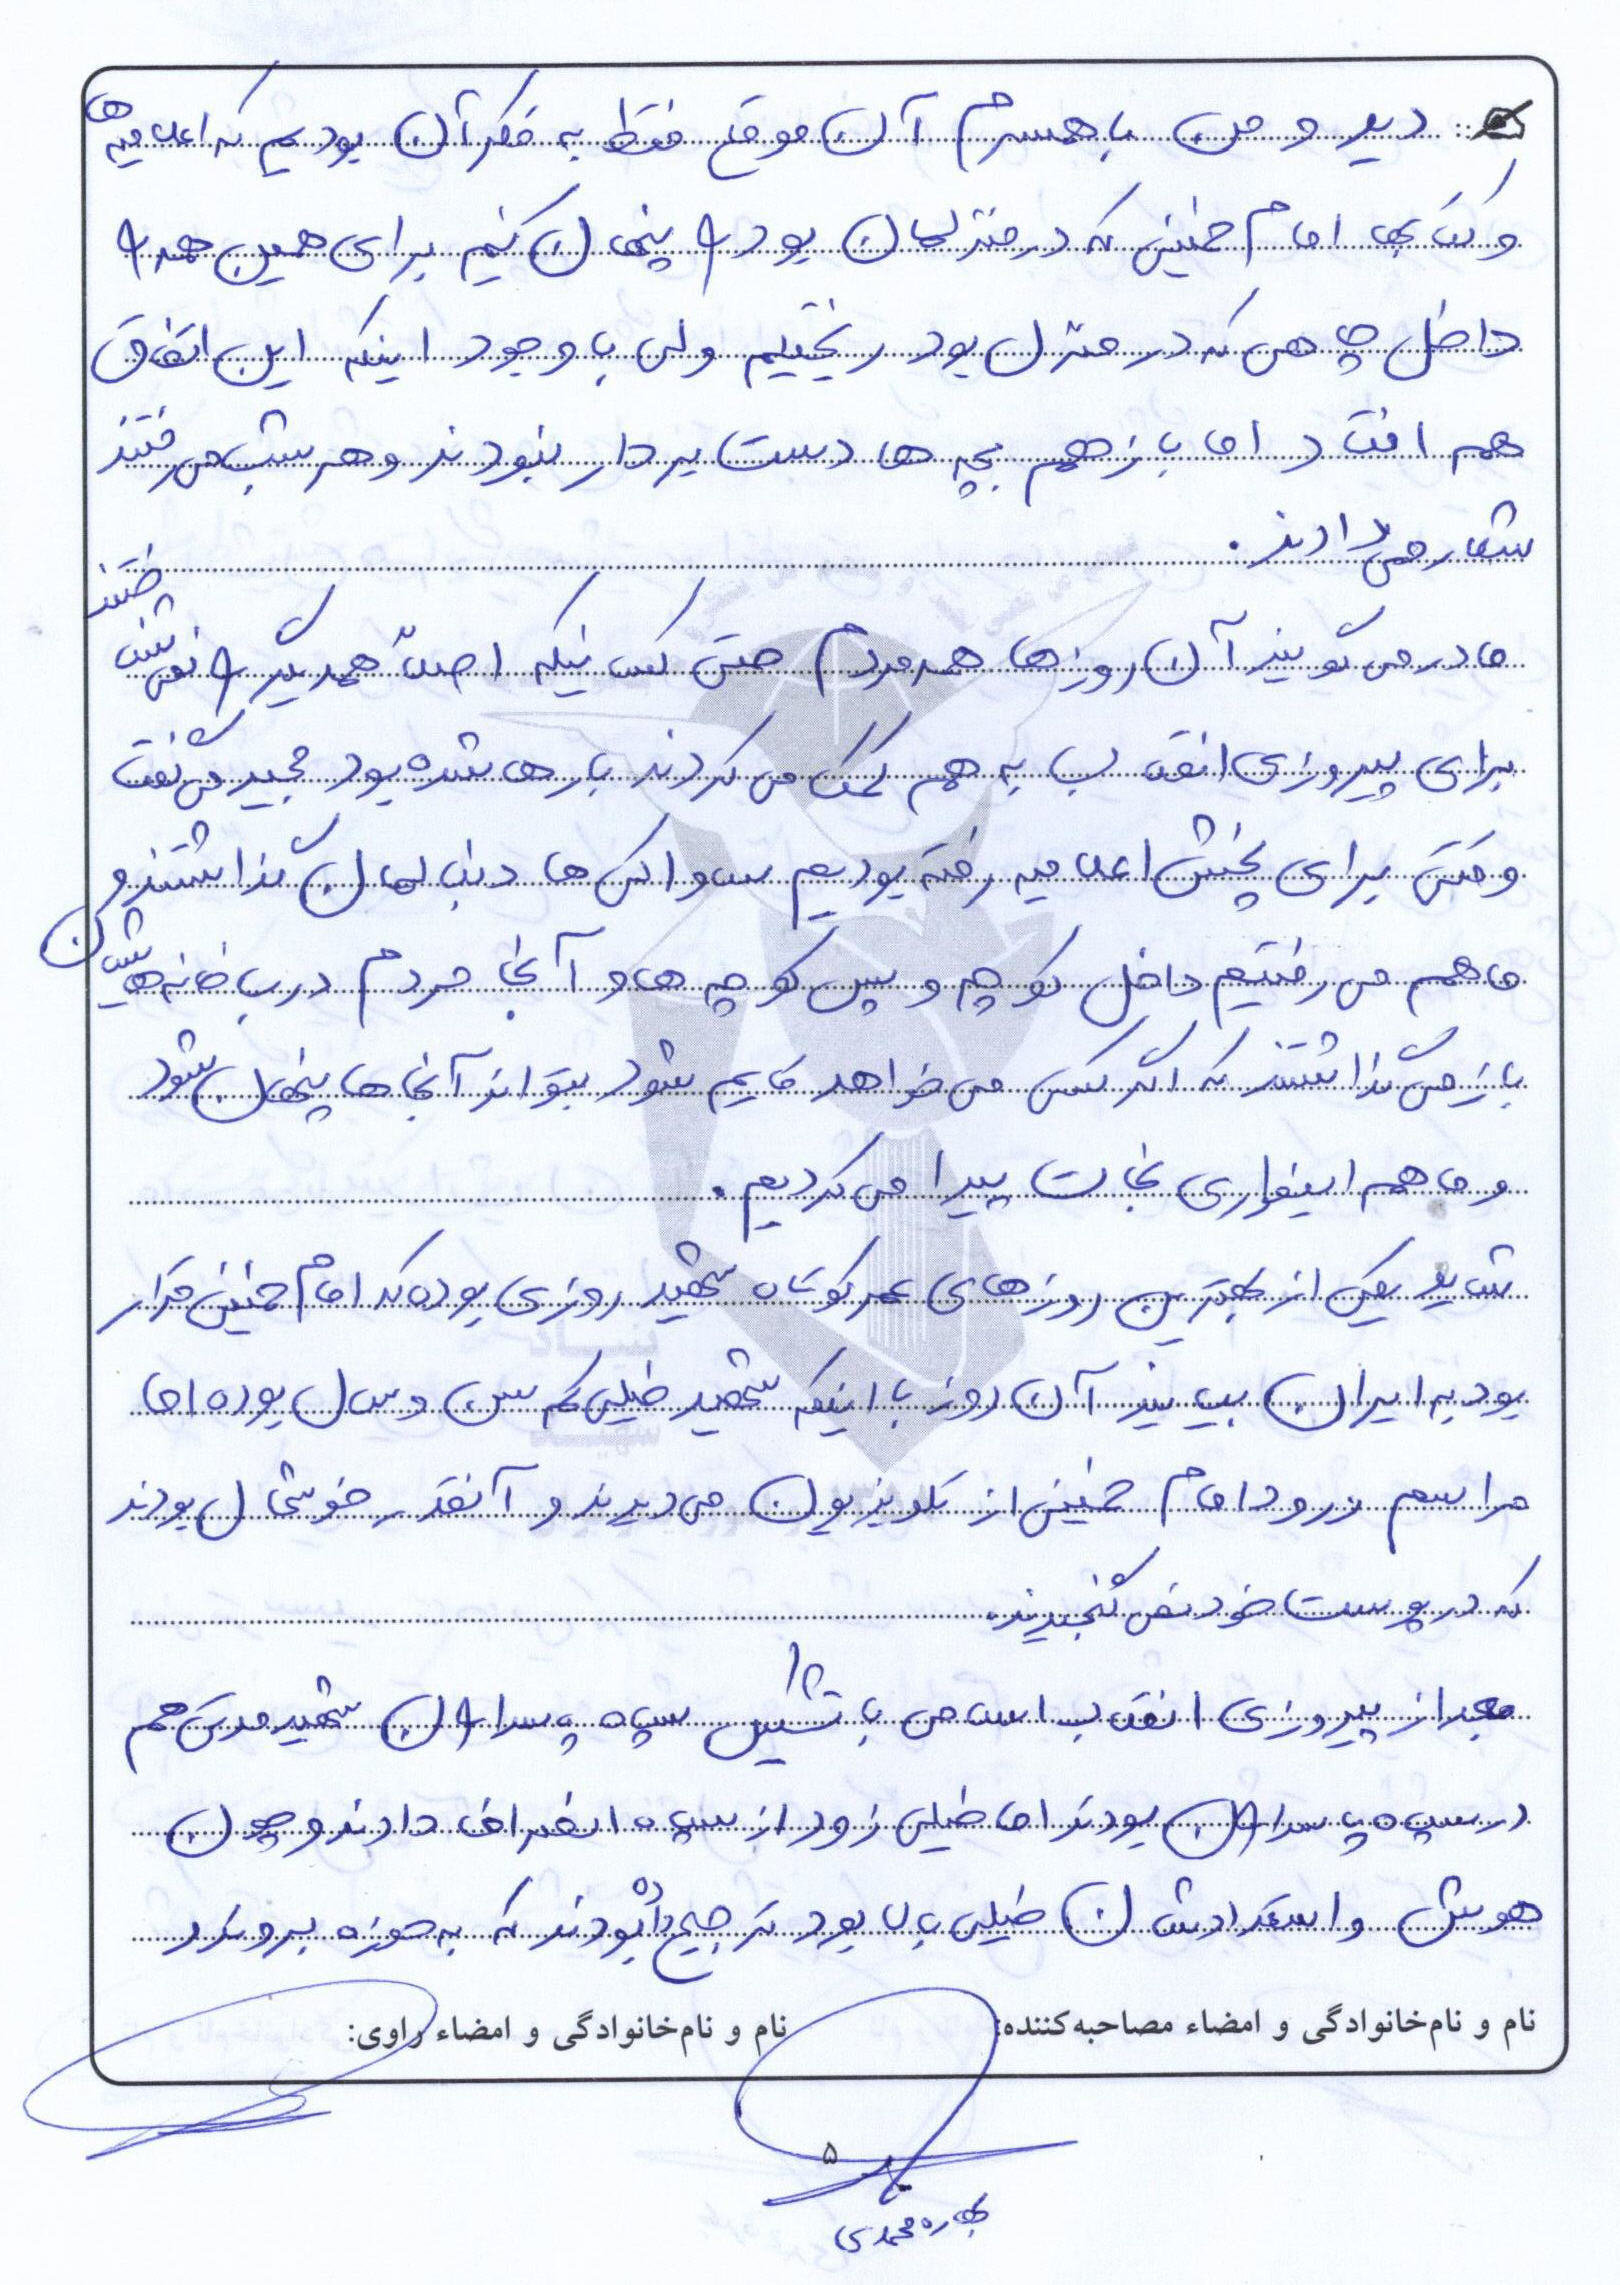 دید و من با همسرم آن موقع فقط به فکر آن بودیم که اعلامیه ها
و کتابها امام خمینی که در منزلمان بود را پنهان کنیم برای همین همه را
داخل چاهی که در منزل بود ریختیم ولی با وجود اینکه این اتفاق
هم افتاد اما باز هم بچه ها دست بردار نبودند و هر شب می رفتند
شعار می دادند.
مادر می گویند آن روزها همه مردم حتی کسانیکه اصلاً همدیگر را نمی شناختند
برای پیروزی انقلاب به هم کمک می کردند بارها شده بود مجید می گفت
وقتی برای پخش اعلامیه رفته بودیم ساواکی ها دنبالمان گذاشتند و
ما هم می رفتیم داخل کوچه و پس کوچه ها و آنجا مردم درب خانه هایشان
باز می گذاشتند که اگر کسی می خواهد قایم شود بتواند آنجاها پنهان شود
و ما هم اینطوری نجات پیدا می کردیم.
شاید یکی از بهترین روزهای عمر کوتاه شهید روزی بوده که امام خمینی قرار
بود به ایران بیایند آن روز با اینکه شهید خیلی کم سن و سال بوده اما
مراسم ورود امام خمینی از تلویزیون می دیدند و آنقدر خوشحال بودند
که در پوست خود نمی گنجیدند.
بعد از پیروزی انقلاب اسلامی با تشکیل سپاه پاسداران شهید مدتی هم
در سپاه پاسداران بودند اما خیلی زود از سپاه انصراف دادند و چون
هوش و استعدادشان خیلی بالا بود ترجیح داده بودند که به حوزه برود و در
نام و نام‌خانوادگی و امضاء مصاحبه‌کننده:
نام و نام‌خانوادگی و امضاء راوی:
۵
بهاره محمدی